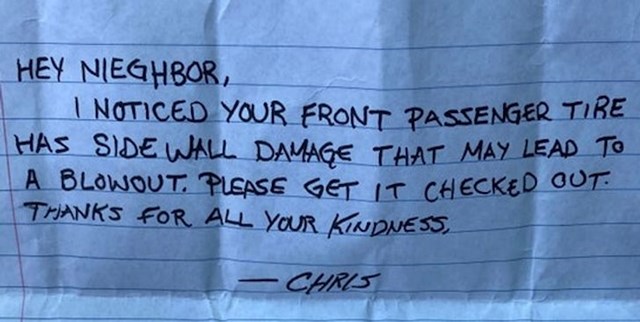 HEY NIEGHBOR,
I NOTICED YOUR FRONT PASSENGER TIRE
HAS SIDE WALL DAMAGE THAT MAY LEAD TO
A BLOWOUT. PLEASE GET IT CHECKED OUT.
THANKS FOR ALL YOUR KINDNESS,
— CHRIS